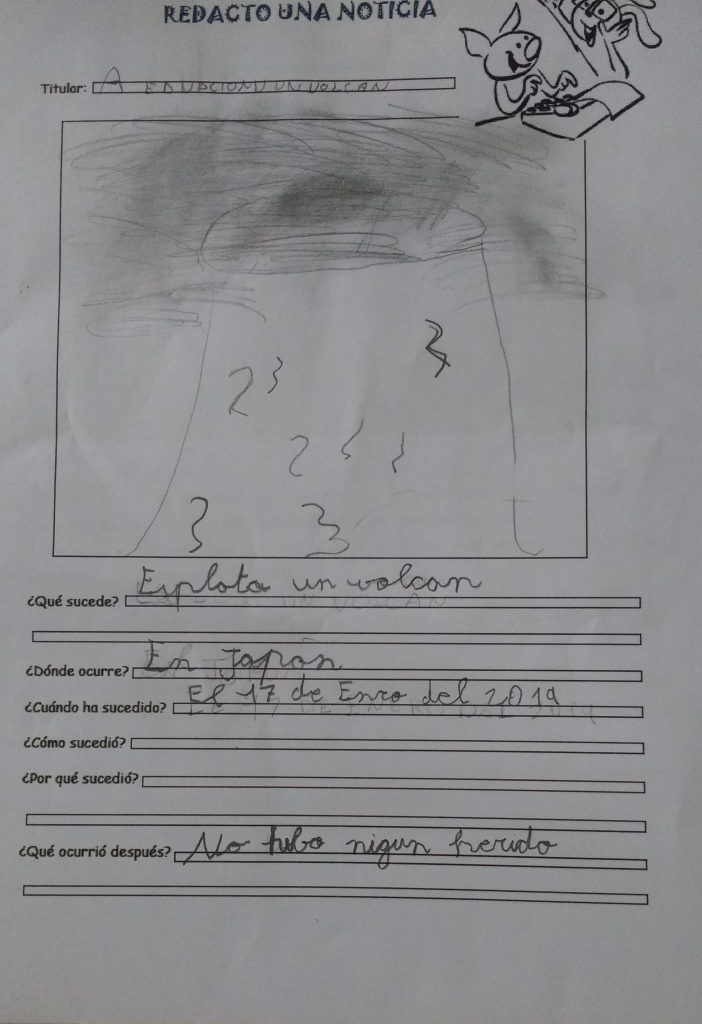 REDACTO UNA NOTICIA
Titular: A UN VOLCAN
¿Qué sucede? Esplota un volcan
¿Dónde ocurre? En Japón
¿Cuándo ha sucedido? El 17 de Enro del 2019
¿Cómo sucedió?
¿Por qué sucedió?
¿Qué ocurrió después? No hubo nigun herido